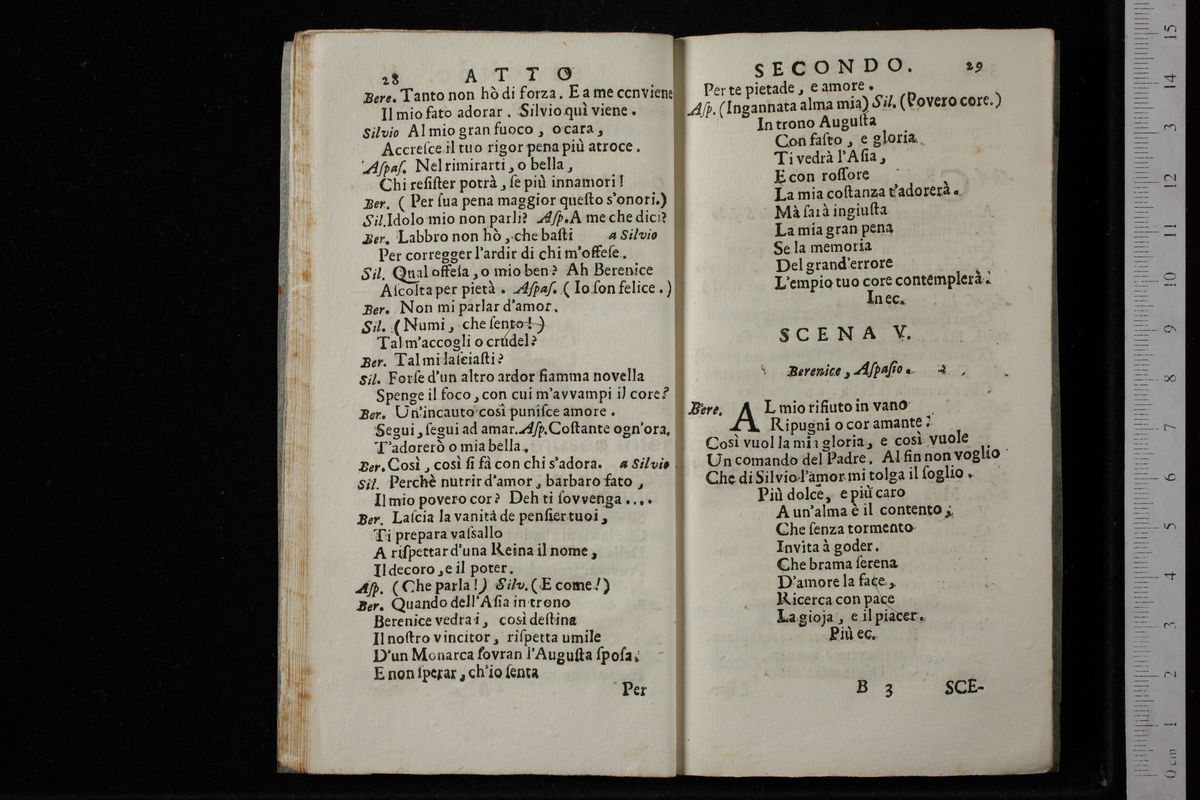 28 ATTO
Bere. Tanto non hò di forza. E a me conviene
Il mio fato adorar. Silvio quì viene.
Silvio Al mio gran fuoco, o cara,
Accreſce il tuo rigor pena più atroce.
Aſpaſ. Nel rimirarti, o bella,
Chi reſiſter potrà, ſe più innamori!
Ber. (Per ſua pena maggior queſto s'onori.)
Sil. Idolo mio non parli? Aſp. A me che dici?
Ber. Labbro non hò, che baſti a Silvio
Per corregger l'ardir di chi m'offeſe.
Sil. Qual offeſa, o mio ben? Ah Berenice
Aſcolta per pietà. Aſpaſ. (Io ſon felice.)
Ber. Non mi parlar d'amor.
Sil. (Numi, che ſento!)
Tal m'accogli o crudel?
Ber. Tal mi laſciaſti?
Sil. Forſe d'un altro ardor fiamma novella
Spenge il foco, con cui m'avvampi il core?
Ber. Un'incauto così puniſce amore.
Segui, ſegui ad amar. Aſp. Coſtante ogn'ora,
T'adorerò o mia bella.
Ber. Così, così ſi fà con chi s'adora. a Silvio
Sil. Perchè nutrir d'amor, barbaro fato,
Il mio povero cor? Deh ti ſovvenga....
Ber. Laſcia la vanità de penſier tuoi,
Ti prepara vaſsallo
A riſpettar d'una Reina il nome,
Il decoro, e il poter.
Aſp. (Che parla!) Silv. (E come!)
Ber. Quando dell'Aſia in trono
Berenice vedrai, così deſtina
Il noſtro vincitor, riſpetta umile
D'un Monarca ſovran l'Auguſta ſpoſa;
E non ſperar, ch'io ſenta
Per
SECONDO. 29
Per te pietade, e amore.
Aſp. (Ingannata alma mia) Sil. (Povero core.)
In trono Auguſta
Con faſto, e gloria
Ti vedrà l'Aſia,
E con roſſore
La mia coſtanza t'adorerà.
Mà ſarà ingiuſta
La mia gran pena
Se la memoria
Del grand'errore
L'empio tuo core contemplerà.
In ec.
SCENA V.
Berenice, Aſpaſio.
Bere. AL mio rifiuto in vano
Ripugni o cor amante:
Così vuol la mia gloria, e così vuole
Un comando del Padre. Al fin non voglio
Che di Silvio l'amor mi tolga il ſoglio.
Più dolce, e più caro
A un'alma è il contento,
Che ſenza tormento
Invita à goder.
Che brama ſerena
D'amore la face,
Ricerca con pace
La gioja, e il piacer.
Più ec.
B 3 SCE-
0 cm 1 2 3 4 5 6 7 8 9 10 11 12 13 14 15